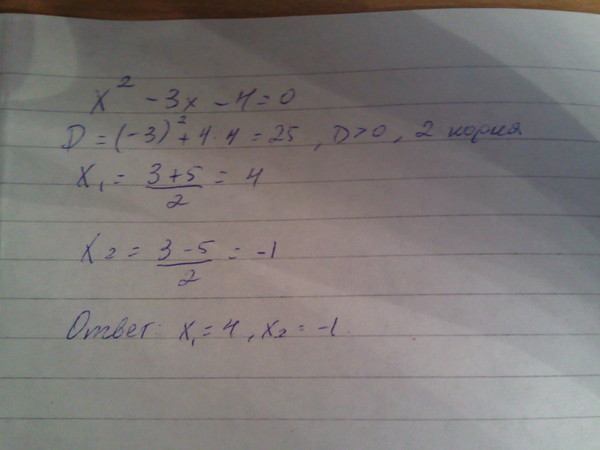 x² - 3x - 4 = 0
D = (-3)² + 4·4 = 25, D>0, 2 корня
x₁ = (3+5)/2 = 4
x₂ = (3-5)/2 = -1
Ответ: x₁ = 4, x₂ = -1.